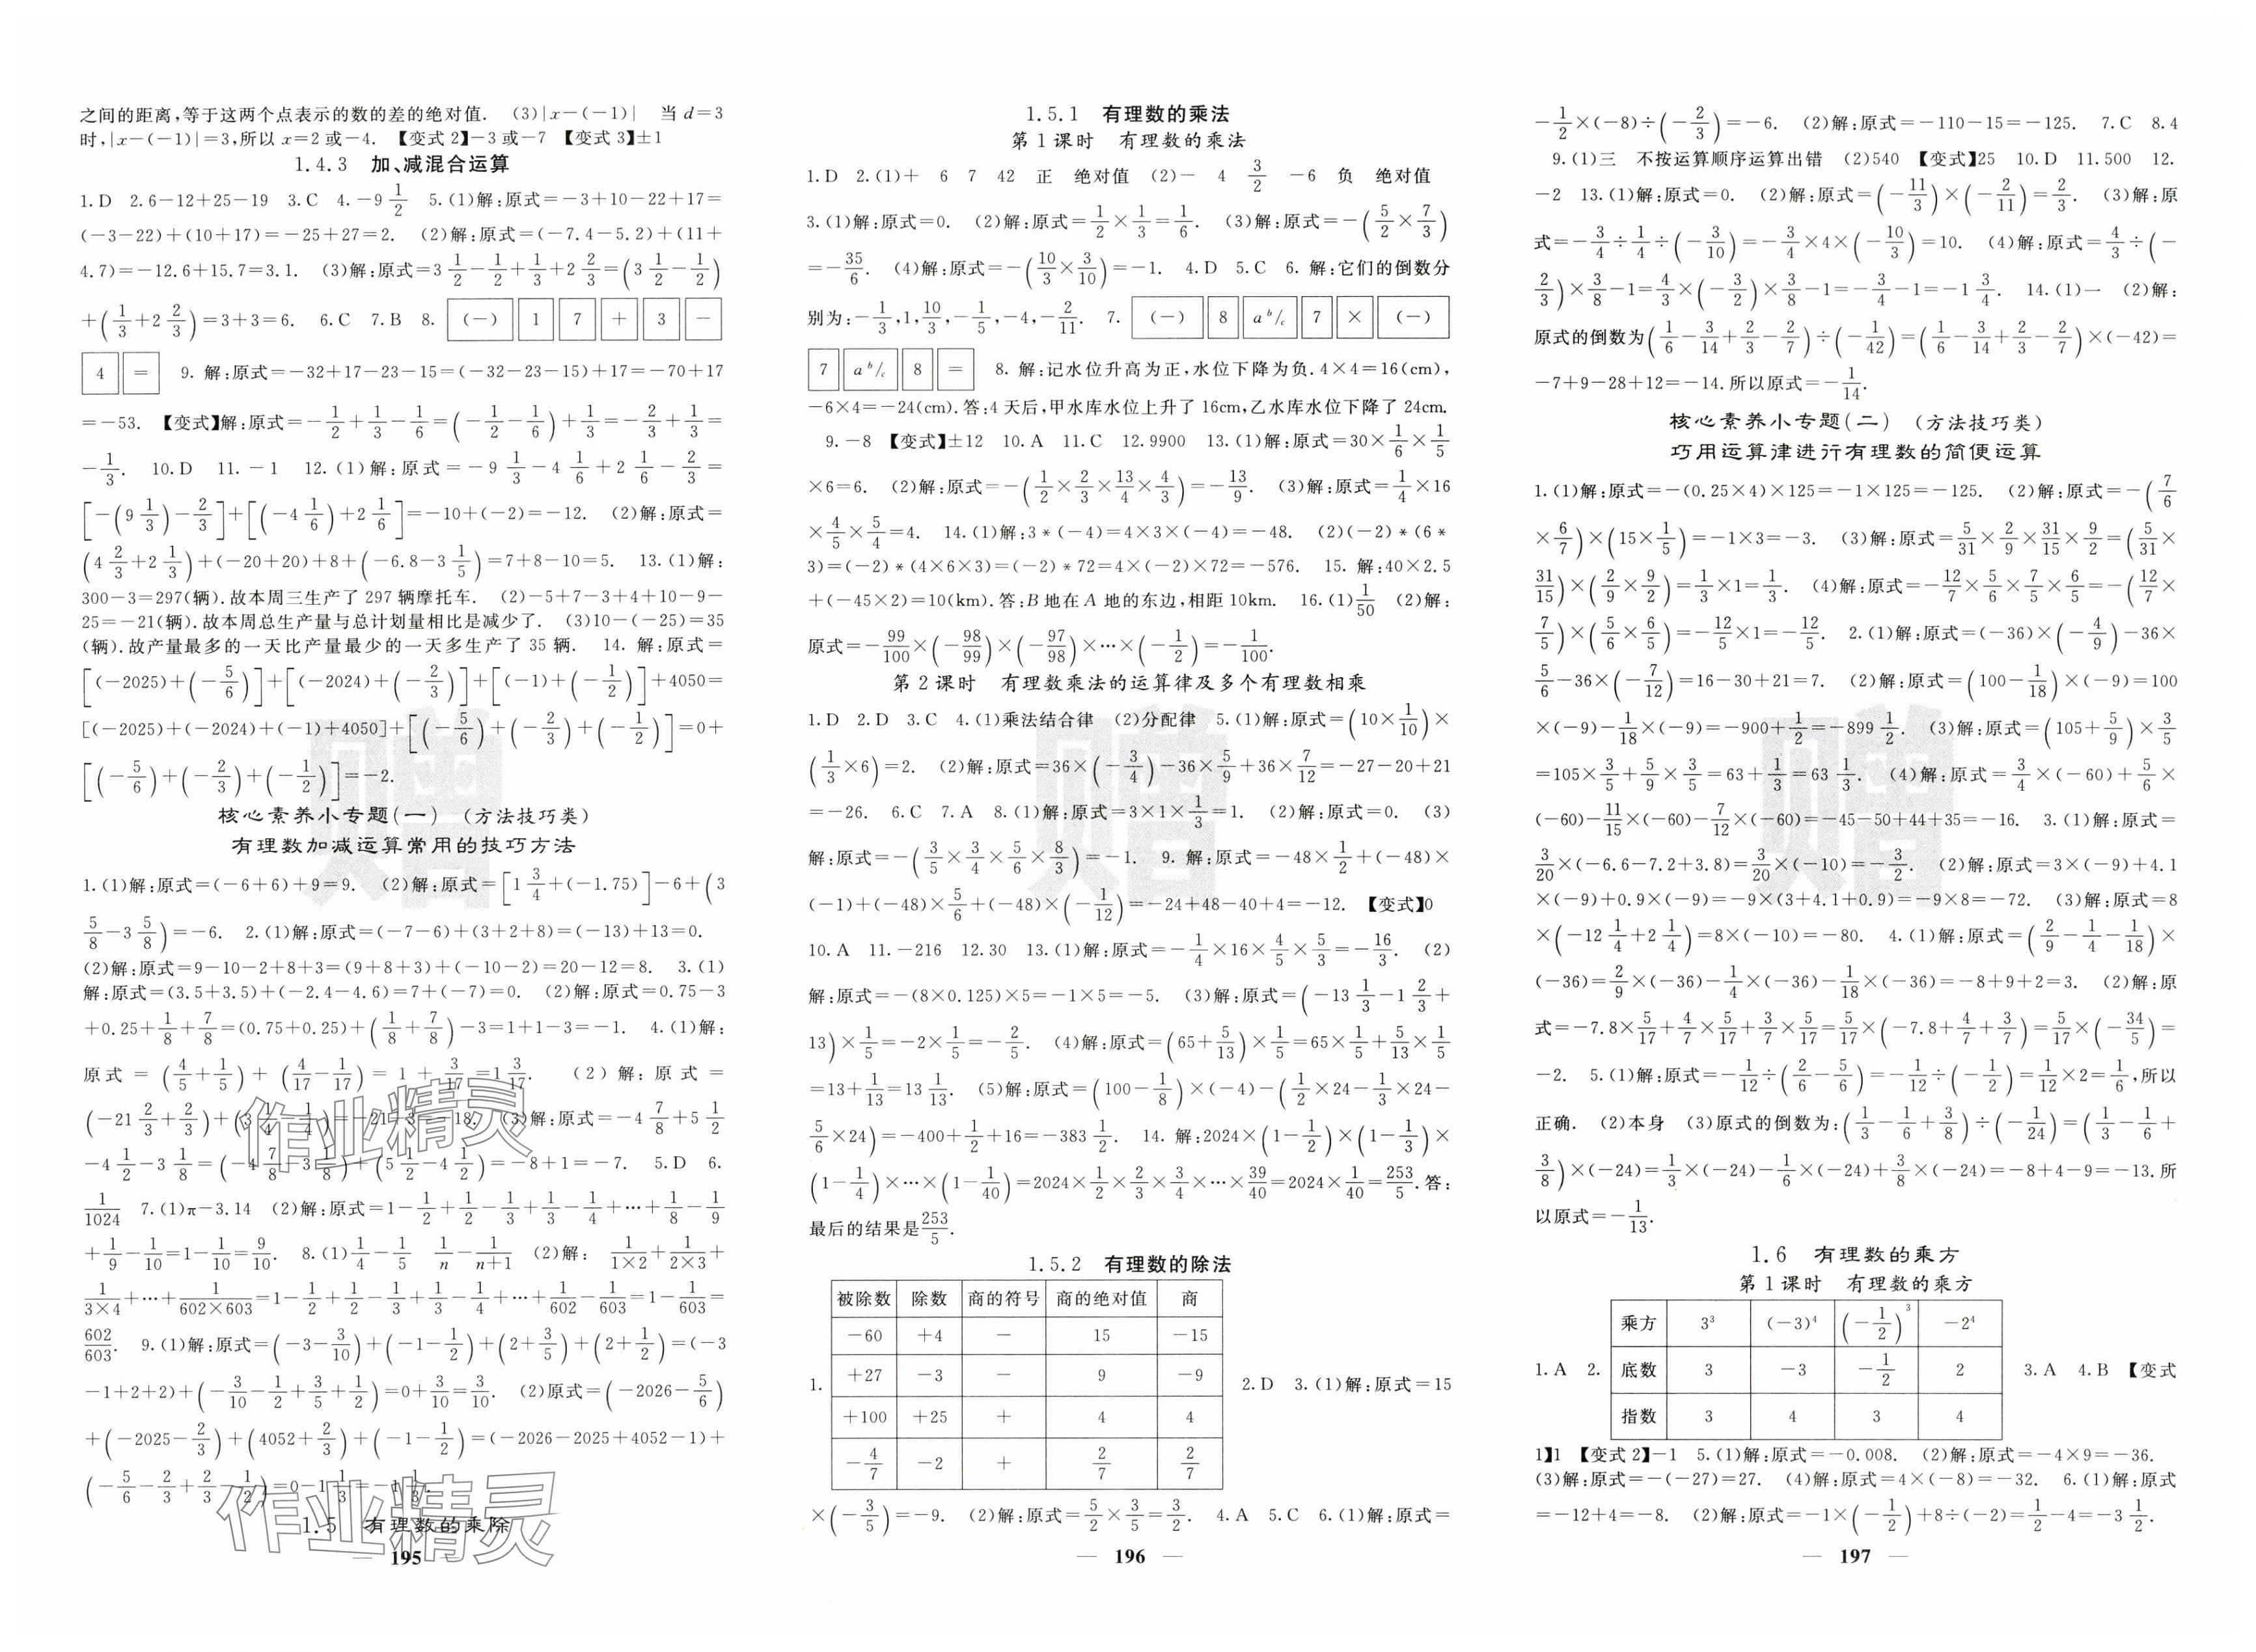 之间的距离,等于这两个点表示的数的差的绝对值. (3)|x-(-1)| 当 d=3
时,|x-(-1)|=3,所以 x=2 或-4. 【变式 2】-3 或-7 【变式 3】±1
1.4.3 加、减混合运算
1.D 2.6-12+25-19 3.C 4.-9 1/2 5.(1)解:原式=-3+10-22+17=
(-3-22)+(10+17)=-25+27=2. (2)解:原式=(-7.4-5.2)+(11+
4.7)=-12.6+15.7=3.1. (3)解:原式=3 1/2-1/2+1/3+2 2/3=(3 1/2-1/2)
+(1/3+2 2/3)=3+3=6. 6.C 7.B 8. (-) 1 7 + 3 -
4 = 9. 解:原式=-32+17-23-15=(-32-23-15)+17=-70+17
=-53. 【变式】解:原式=-1/2+1/3-1/6=(-1/2-1/6)+1/3=-2/3+1/3=
-1/3. 10.D 11.-1 12.(1)解:原式=-9 1/3-4 1/6+2 1/6-2/3=
[-(9 1/3)-2/3]+[(-4 1/6)+2 1/6]=-10+(-2)=-12. (2)解:原式=
(4 2/3+2 1/3)+(-20+20)+8+(-6.8-3 1/5)=7+8-10=5. 13.(1)解:
300-3=297(辆).故本周三生产了 297 辆摩托车. (2)-5+7-3+4+10-9-
25=-21(辆).故本周总生产量与总计划量相比是减少了. (3)10-(-25)=35
(辆).故产量最多的一天比产量最少的一天多生产了 35 辆. 14. 解:原式=
[(-2025)+(-5/6)]+[(-2024)+(-2/3)]+[(-1)+(-1/2)]+4050=
[(-2025)+(-2024)+(-1)+4050]+[(-5/6)+(-2/3)+(-1/2)]=0+
[(-5/6)+(-2/3)+(-1/2)]=-2.
核心素养小专题(一) (方法技巧类)
有理数加减运算常用的技巧方法
1.(1)解:原式=(-6+6)+9=9. (2)解:原式=[1 3/4+(-1.75)]-6+(3
5/8-3 5/8)=-6. 2.(1)解:原式=(-7-6)+(3+2+8)=(-13)+13=0.
(2)解:原式=9-10-2+8+3=(9+8+3)+(-10-2)=20-12=8. 3.(1)
解:原式=(3.5+3.5)+(-2.4-4.6)=7+(-7)=0. (2)解:原式=0.75-3
+0.25+1/8+7/8=(0.75+0.25)+(1/8+7/8)-3=1+1-3=-1. 4.(1)解:
原式=(4/5+1/5)+(4/17-1/17)=1+3/17=1 3/17. (2)解:原式=
(-21 2/3+2/3)+(3 1/4-1/4)=-21+3=-18. (3)解:原式=-4 7/8+5 1/2
-4 1/2-3 1/8=(-4 7/8-3 1/8)+(5 1/2-4 1/2)=-8+1=-7. 5.D 6.
1/1024 7.(1)π-3.14 (2)解:原式=1-1/2+1/2-1/3+1/3-1/4+…+1/8-1/9
+1/9-1/10=1-1/10=9/10. 8.(1)1/4-1/5 1/n-1/(n+1) (2)解: 1/(1×2)+1/(2×3)+
1/(3×4)+…+1/(602×603)=1-1/2+1/2-1/3+1/3-1/4+…+1/602-1/603=1-1/603=
602/603. 9.(1)解:原式=(-3-3/10)+(-1-1/2)+(2+3/5)+(2+1/2)=(-3
-1+2+2)+(-3/10-1/2+3/5+1/2)=0+3/10=3/10. (2)原式=(-2026-5/6)
+(-2025-2/3)+(4052+2/3)+(-1-1/2)=(-2026-2025+4052-1)+
(-5/6-2/3+2/3-1/2)=0-1 1/3=-1 1/3.
1.5 有理数的乘除
195
1.5.1 有理数的乘法
第 1 课时 有理数的乘法
1.D 2.(1)+ 6 7 42 正 绝对值 (2)- 4 3/2 -6 负 绝对值
3.(1)解:原式=0. (2)解:原式=1/2×1/3=1/6. (3)解:原式=-(5/2×7/3)
=-35/6. (4)解:原式=-(10/3×3/10)=-1. 4.D 5.C 6. 解:它们的倒数分
别为:-1/3,1,10/3,-1/5,-4,-2/11. 7. (-) 8 a b/c 7 × (-)
7 a b/c 8 = 8. 解:记水位升高为正,水位下降为负.4×4=16(cm),
-6×4=-24(cm).答:4 天后,甲水库水位上升了 16cm,乙水库水位下降了 24cm.
9.-8 【变式】±12 10.A 11.C 12.9900 13.(1)解:原式=30×1/6×1/5
×6=6. (2)解:原式=-(1/2×2/3×13/4×4/3)=-13/9. (3)解:原式=1/4×16
×4/5×5/4=4. 14.(1)解:3*(-4)=4×3×(-4)=-48. (2)(-2)*(6*
3)=(-2)*(4×6×3)=(-2)*72=4×(-2)×72=-576. 15. 解:40×2.5
+(-45×2)=10(km).答:B 地在 A 地的东边,相距 10km. 16.(1)1/50 (2)解:
原式=-99/100×(-98/99)×(-97/98)×…×(-1/2)=-1/100.
第 2 课时 有理数乘法的运算律及多个有理数相乘
1.D 2.D 3.C 4.(1)乘法结合律 (2)分配律 5.(1)解:原式=(10×1/10)×
(1/3×6)=2. (2)解:原式=36×(-3/4)-36×5/9+36×7/12=-27-20+21
=-26. 6.C 7.A 8.(1)解:原式=3×1×1/3=1. (2)解:原式=0. (3)
解:原式=-(3/5×3/4×5/6×8/3)=-1. 9. 解:原式=-48×1/2+(-48)×
(-1)+(-48)×5/6+(-48)×(-1/12)=-24+48-40+4=-12. 【变式】0
10.A 11.-216 12.30 13.(1)解:原式=-1/4×16×4/5×5/3=-16/3. (2)
解:原式=-(8×0.125)×5=-1×5=-5. (3)解:原式=(-13 1/3-1 2/3+
13)×1/5=-2×1/5=-2/5. (4)解:原式=(65+5/13)×1/5=65×1/5+5/13×1/5
=13+1/13=13 1/13. (5)解:原式=(100-1/8)×(-4)-(1/2×24-1/3×24-
5/6×24)=-400+1/2+16=-383 1/2. 14. 解:2024×(1-1/2)×(1-1/3)×
(1-1/4)×…×(1-1/40)=2024×1/2×2/3×3/4×…×39/40=2024×1/40=253/5.答:
最后的结果是253/5.
1.5.2 有理数的除法
被除数 除数 商的符号 商的绝对值 商
-60 +4 - 15 -15
+27 -3 - 9 -9
1. 2.D 3.(1)解:原式=15
+100 +25 + 4 4
-4/7 -2 + 2/7 2/7
×(-3/5)=-9. (2)解:原式=5/2×3/5=3/2. 4.A 5.C 6.(1)解:原式=
196
-1/2×(-8)÷(-2/3)=-6. (2)解:原式=-110-15=-125. 7.C 8.4
9.(1)三 不按运算顺序运算出错 (2)540 【变式】25 10.D 11.500 12.
-2 13.(1)解:原式=0. (2)解:原式=(-11/3)×(-2/11)=2/3. (3)解:原
式=-3/4÷1/4÷(-3/10)=-3/4×4×(-10/3)=10. (4)解:原式=4/3÷(-
2/3)×3/8-1=4/3×(-3/2)×3/8-1=-3/4-1=-1 3/4. 14.(1)一 (2)解:
原式的倒数为(1/6-3/14+2/3-2/7)÷(-1/42)=(1/6-3/14+2/3-2/7)×(-42)=
-7+9-28+12=-14.所以原式=-1/14.
核心素养小专题(二) (方法技巧类)
巧用运算律进行有理数的简便运算
1.(1)解:原式=-(0.25×4)×125=-1×125=-125. (2)解:原式=-(7/6
×6/7)×(15×1/5)=-1×3=-3. (3)解:原式=5/31×2/9×31/15×9/2=(5/31×
31/15)×(2/9×9/2)=1/3×1=1/3. (4)解:原式=-12/7×5/6×7/5×6/5=-(12/7×
7/5)×(5/6×6/5)=-12/5×1=-12/5. 2.(1)解:原式=(-36)×(-4/9)-36×
5/6-36×(-7/12)=16-30+21=7. (2)解:原式=(100-1/18)×(-9)=100
×(-9)-1/18×(-9)=-900+1/2=-899 1/2. (3)解:原式=(105+5/9)×3/5
=105×3/5+5/9×3/5=63+1/3=63 1/3. (4)解:原式=3/4×(-60)+5/6×
(-60)-11/15×(-60)-7/12×(-60)=-45-50+44+35=-16. 3.(1)解:原式=
3/20×(-6.6-7.2+3.8)=3/20×(-10)=-3/2. (2)解:原式=3×(-9)+4.1
×(-9)+0.9×(-9)=-9×(3+4.1+0.9)=-9×8=-72. (3)解:原式=8
×(-12 1/4+2 1/4)=8×(-10)=-80. 4.(1)解:原式=(2/9-1/4-1/18)×
(-36)=2/9×(-36)-1/4×(-36)-1/18×(-36)=-8+9+2=3. (2)解:原
式=-7.8×5/17+4/7×5/17+3/7×5/17=5/17×(-7.8+4/7+3/7)=5/17×(-34/5)=
-2. 5.(1)解:原式=-1/12÷(2/6-5/6)=-1/12÷(-1/2)=1/12×2=1/6,所以
正确. (2)本身 (3)原式的倒数为:(1/3-1/6+3/8)÷(-1/24)=(1/3-1/6+
3/8)×(-24)=1/3×(-24)-1/6×(-24)+3/8×(-24)=-8+4-9=-13.所
以原式=-1/13.
1.6 有理数的乘方
第 1 课时 有理数的乘方
乘方 3³ (-3)⁴ (-1/2)³ -2⁴
1.A 2. 底数 3 -3 -1/2 2 3.A 4.B 【变式
指数 3 4 3 4
1】1 【变式 2】-1 5.(1)解:原式=-0.008. (2)解:原式=-4×9=-36.
(3)解:原式=-(-27)=27. (4)解:原式=4×(-8)=-32. 6.(1)解:原式
=-12+4=-8. (2)解:原式=-1×(-1/2)+8÷(-2)=1/2-4=-3 1/2.
197
赠
赠
赠
作业精灵
作业精灵